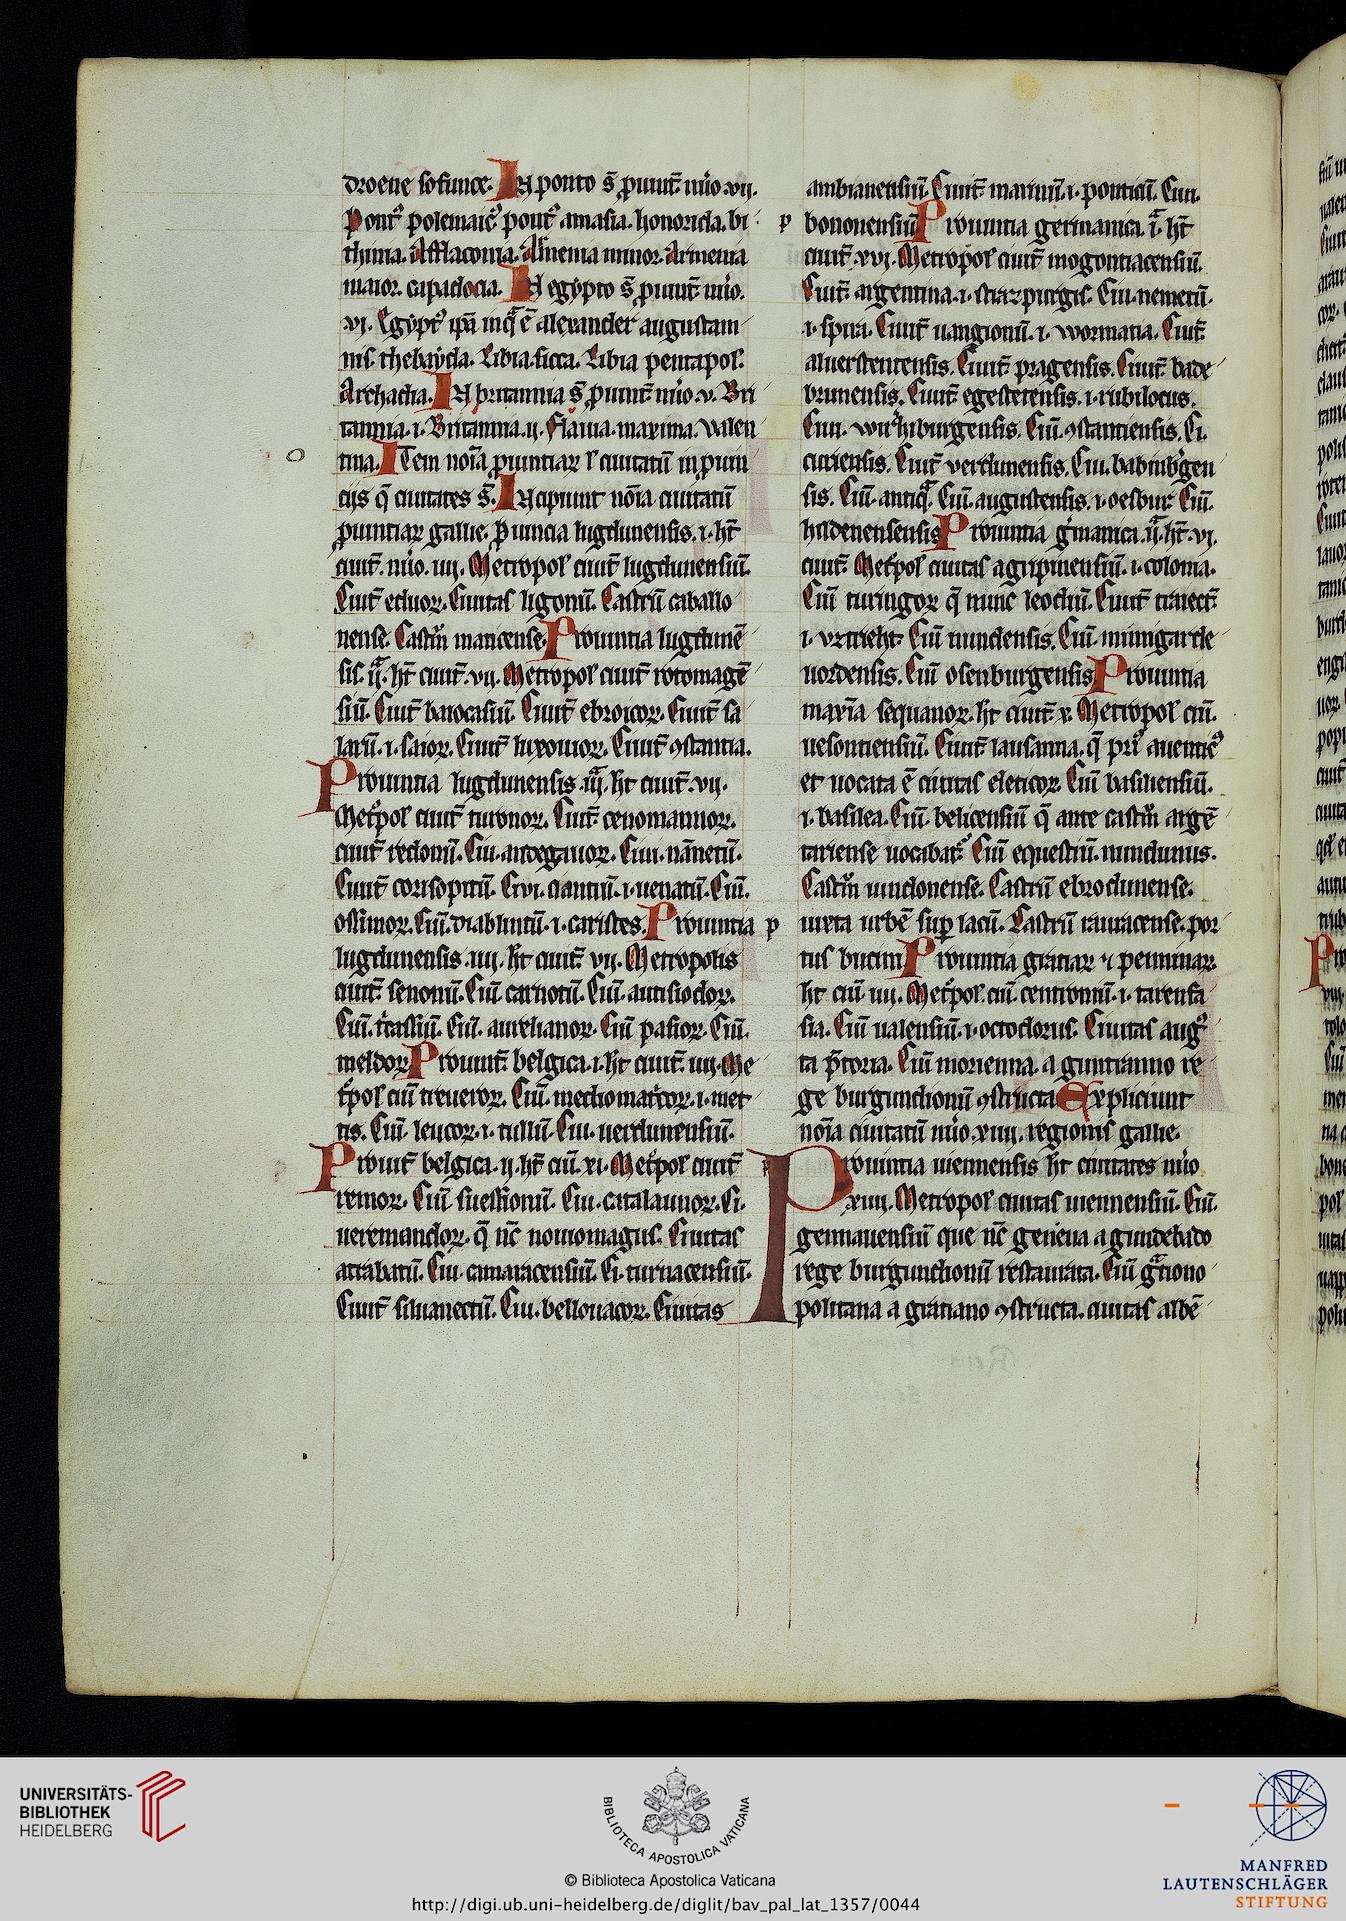 droene sofunde. IN ponto s̄ ꝓuint̄ nūo vij.
Pontꝰ polemaicꝰ pontꝰ amasia. honorida. bi
thinia. Afflaconia. Armenia minor. Armenia
maior. capadocia. IN egypto s̄ ꝓuint̄ nūo.
vj. Egyptꝰ ip̄a in q̄ ē alexander augustam
nis. thebayda. Libia. sicca. Libia pentapol.
Archadia. IN britannia s̄ ꝓuint̄ nūo. v. Bri
tannia. i. Britannia. ij. Flauia. maxima. valen
tina. ITem noīa ꝓuintiaꝝ ⁊ ciuitatū in ꝓuin
cijs q̄ ciuitates s̄. INcipiunt noīa ciuitatū
ꝓuintiaꝝ gallie. Prouincia lugdunensis. i. ht̄
ciuit̄. nūo. iiij. Metropol ciuit̄ lugdunensiū.
Ciuit̄ eduoꝝ. Ciuitas ligonū. Castrū caballo
nense. Castrm̄ mancense. Prouintia lugdunē
sis. ij. ht̄ ciuit̄. vij. Metropol ciuit̄ rotomagē
siū. Ciuit̄ baiocasiū. Ciuit̄ ebroicoꝝ. Ciuit̄ sa
larū. i. saioꝝ. Ciuit̄ luxouioꝝ. Ciuit̄ ꝯstantia.
Prouintia lugdunensis iij. ht ciuit̄. vij.
Met̄pol ciuit̄ turonoꝝ. Ciuit̄ cenomannoꝝ.
ciuit̄ redonū. Ciu. andegauoꝝ. Ciui. nānetū.
Ciuit̄ corisopitū. Civi. ciantiū. i. uenatiū. Ciū.
ossimoꝝ. Ciū. diablintū. i. caristes. Prouintia
lugdunensis iiij. ht̄ ciuit̄ vij. Metropolis
ciuit̄ senonū. Ciū carnotū. Ciū. autisiodoꝝ.
Ciū. t̄cassiū. Ciū. aurelianoꝝ. Ciū pasioꝝ. Ciū.
meldoꝝ Prouint̄ belgica. i. ht ciuit̄ iiij. Me
t̄pol ciū treueroꝝ. Ciū. mediomatcoꝝ. i. met
tis. Ciū leucoꝝ. i. tullū. Ciu. uerdunensiū.
Prouit̄ belgica. ij. ht̄ ciū. xi. Met̄pol ciuit̄
remoꝝ. Ciū suessionū. Ciu. catalaunoꝝ. Ci.
ueremandoꝝ. q̄ nc̄ nouiomagus. Ciuitas
atrabatū. Ciu. camaracensiū. Ci. turnacensiū.
Ciuit̄ siluanectū. Ciu. bellouacoꝝ. Ciuitas
ambianensiū. Ciuit̄ marinū. i. pontiū. Ciui.
bononensiū Prouintia germanica. i. ht̄
ciuit̄. xvi. Metropol ciuit̄ mogontiacensiū.
Ciuit̄ argentina. i. strazpurgis. Ciu. nemetū.
i. spira. Ciuit̄ uangionū. i. wormatia. Ciuit̄
aluerstentensis. Ciuit̄ pragensis. Ciuit̄ bade
brunensis. Ciuit̄ egestetensis. i. rubilocus.
Ciui. wirhiburgensis. Ciū. ꝯstantiensis. Ci.
curiensis. Ciuit̄ verdunensis. Ciu. babinbgen
sis. Ciū. antiq̄. Ciū. augustensis. i. oesburc Ciū.
hildenensensis Prouintia gmanica. ij. ht̄. vj.
ciuit̄. Met̄pol ciuitas agripinensiū. i. colonia.
Ciū turingoꝝ q̄ nunc leodiū. Ciuit̄ traiect̄
i. vztrieht. Ciū mindensis. Ciū. mimigarde
uordensis. Ciū osenburgensis. Prouintia
maxīa sequanoꝝ. ht ciuit̄ v. Metropol ciū.
uesontiensiū. Ciuit̄ lausanna. q̄ priꝰ auenticꝰ
et uocata ē ciuitas eleticoꝝ. Ciū basiliensiū.
i. basilea. Ciū. belicensiū q̄ ante castrm̄ argē
tariense uocabatꝰ. Ciū equestriū. niudunus.
Castrm̄ uindonense. Castrū ebrodunense.
iuxta urbē suꝑ lacū. Castrū rauracense. por
tus bucini Prouintia gratiaꝝ ⁊ penninaꝝ
ht ciū iiij. Met̄pol. ciū. centroniū. i. tarensa
sia. Ciū ualensiū. i. octodorus. Ciuitas augꝰ
ta p̄toria. Ciū morienna. a guntranno re
ge burgundionū ꝯstructa Expliciunt
noīa ciuitatū nūo. xiiij. regionis gallie.
Prouintia uiennensis ht ciuitates nūo
xiiij. Metropol ciuitas uiennensiū. Ciū.
gennauensiū que nc̄ geneua a gundebado
rege burgundionū restaurata. Ciū gtiono
politana a gratiano ꝯstructa. ciuitas albē
UNIVERSITÄTS-
BIBLIOTHEK
HEIDELBERG
BIBLIOTECA APOSTOLICA VATICANA
© Biblioteca Apostolica Vaticana
http://digi.ub.uni-heidelberg.de/diglit/bav_pal_lat_1357/0044
MANFRED
LAUTENSCHLÄGER
STIFTUNG